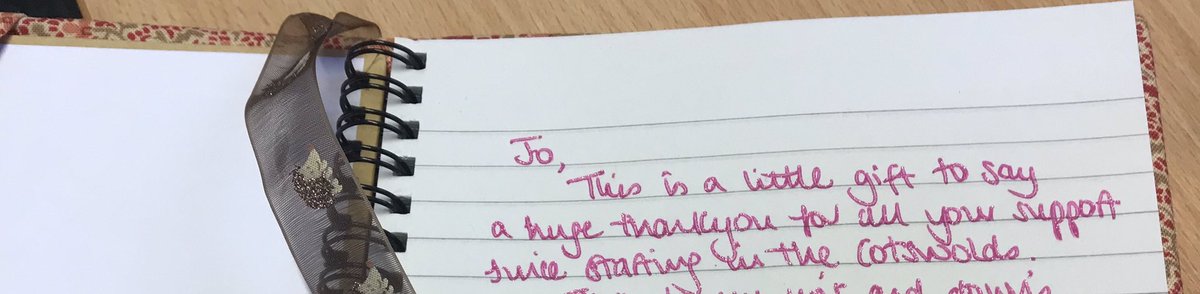 Jo,
This is a little gift to say
a huge thankyou for all your support
since starting in the Cotswolds.
and down's